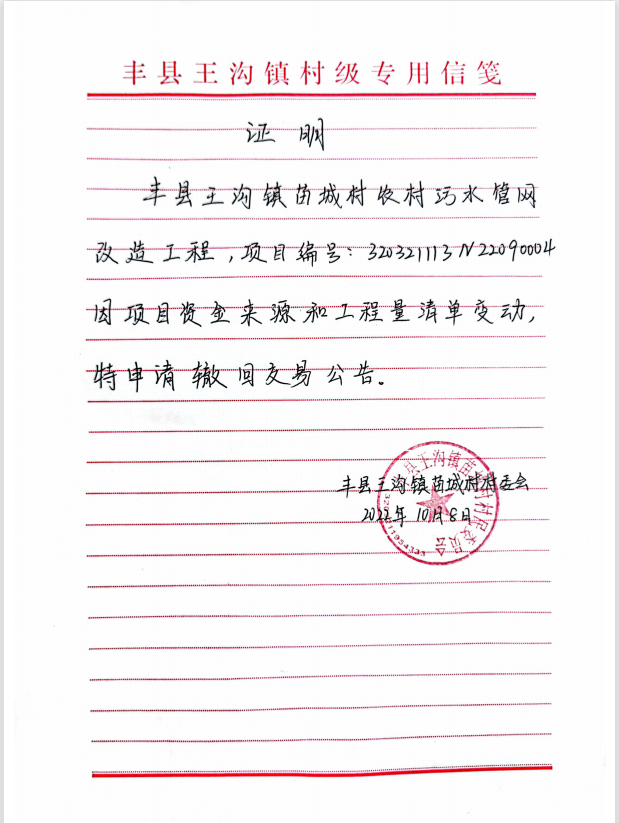 丰县王沟镇村级专用信笺
证明
丰县王沟镇苗城村农村污水管网
改造工程，项目编号：320321113N22090004
因项目资金来源和工程量清单变动，
特申请辙回交易公告。
丰县王沟镇苗城村村委会
2022年10月8日
县王沟镇苗城村村民委员会